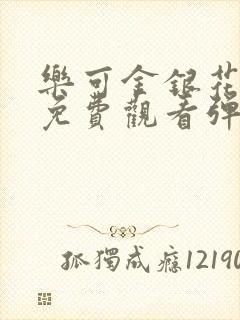 樂可金銀花
免費觀看彈
孤獨成癮12190